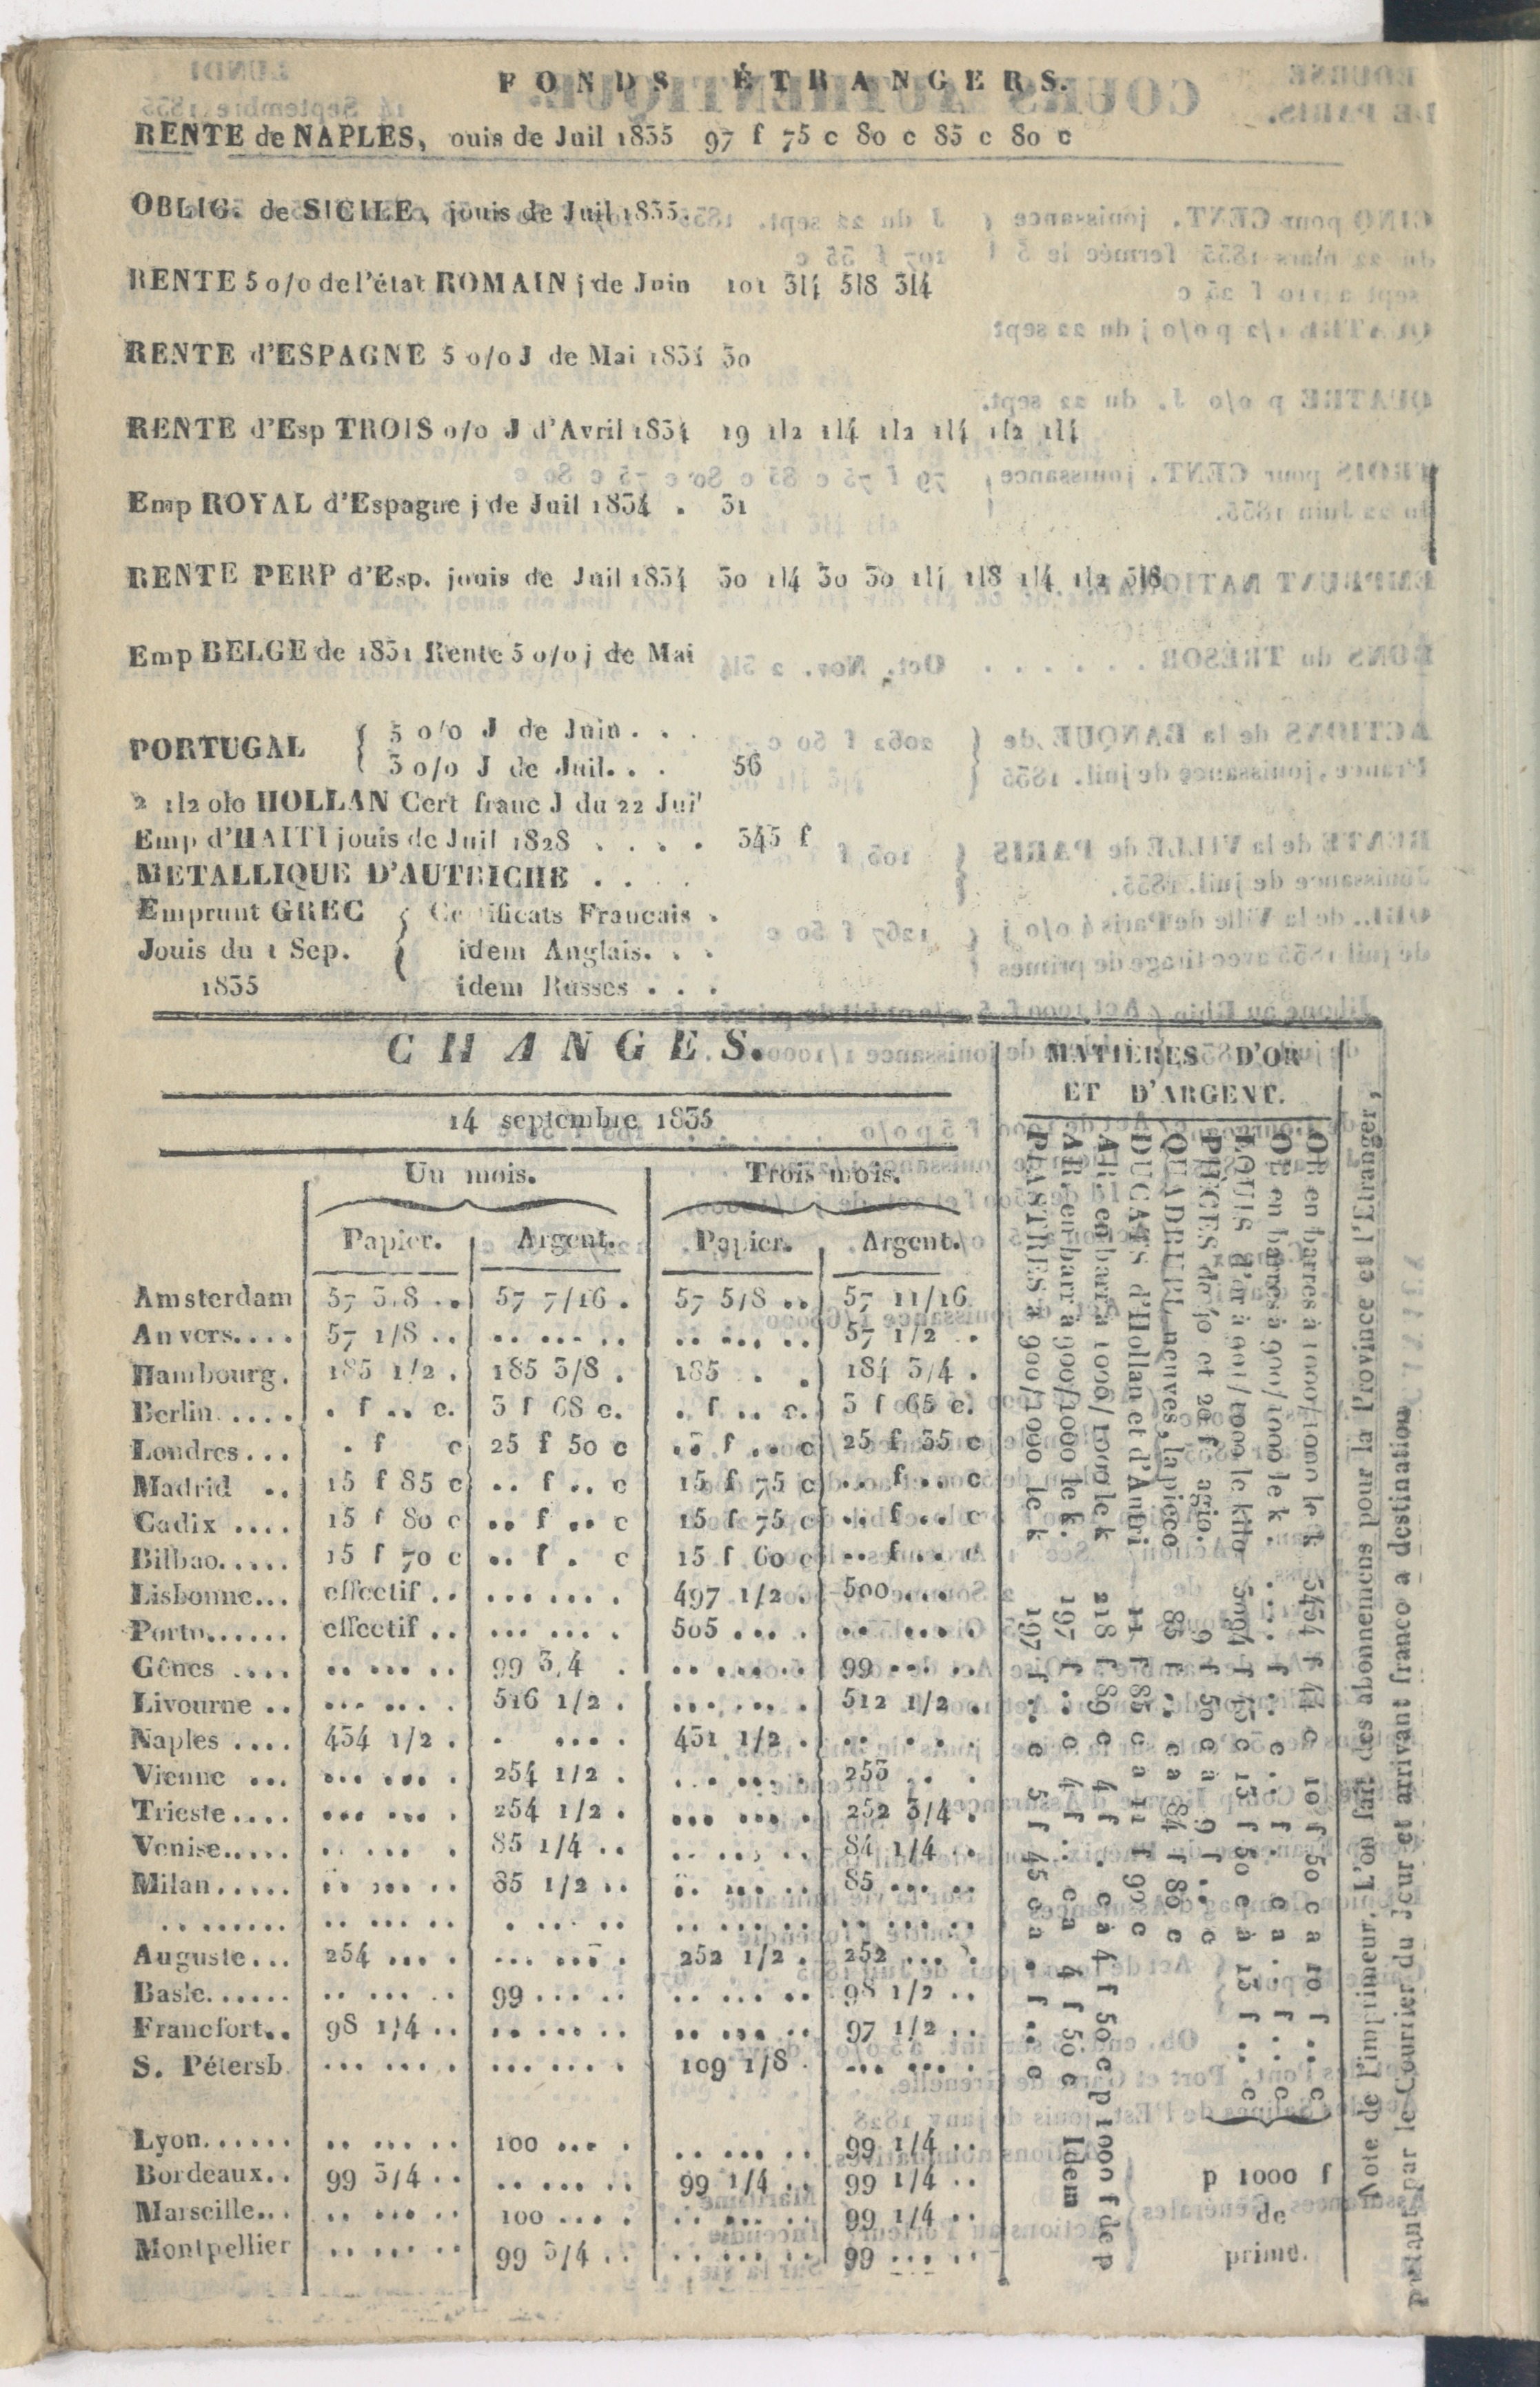 FONDS ÉTRANGERS.
RENTE de NAPLES, ouis de Juil 1835 97 f 75 c 80 c 85 c 80 c
OBLIG. de SICILE, jouis de Juil 1835.
RENTE 5 o/o de l'état ROMAIN j de Juin 101 3|4 5|8 3|4
RENTE d'ESPAGNE 5 o/o J de Mai 1834 30
RENTE d'Esp TROIS o/o J d'Avril 1834 19 1|2 1|4 1|2 1|4 1|2 1|4
Emp ROYAL d'Espagne j de Juil 1834 . 31
RENTE PERP d'Esp. jouis de Juil 1834 30 1|4 30 30 1|4 1|8 1|4 1|2 5|8
Emp BELGE de 1831 Rente 5 o/o j de Mai
PORTUGAL { 5 o/o J de Juin . . .
{ 3 o/o J de Juil. . . 56
2 1|2 o|o HOLLAN Cert franc J du 22 Jui'
Emp d'HAITI jouis de Juil 1828 . . . . 345 f
METALLIQUE D'AUTRICHE . . . .
Emprunt GREC { Certificats Francais .
Jouis du 1 Sep. { idem Anglais. . .
1835 idem Russes . . .
CHANGES.
14 septembre 1835
Un mois. Trois mois.
Papier. Argent. Papier. Argent.
Amsterdam 57 3/8 .. 57 7/16 . 57 5/8 .. 57 11/16
Anvers.... 57 1/8 .. .. ... .. .. ... .. 57 1/2 ..
Hambourg. 185 1/2 . 185 3/8 . 185 . . 184 3/4 .
Berlin .... . f .. c. 3 f 68 c. . f .. c. 3 f 65 c.
Londres... . f c 25 f 50 c .. f .. c 25 f 35 c
Madrid .. 15 f 85 c .. f .. c 15 f 75 c .. f .. c
Cadix .... 15 f 80 c .. f .. c 15 f 75 c .. f .. c
Bilbao..... 15 f 70 c .. f . c 15 f 60 c .. f .. c
Lisbonne... effectif .. ... ... . 497 1/2 . 500 ... .
Porto...... effectif .. ... ... . 505 ... . .. ... ..
Gênes .... .. ... .. 99 3/4 . .. ... .. 99 ... ..
Livourne .. ... ... . 516 1/2 . ... ... . 512 1/2 .
Naples .... 434 1/2 . . ... . 431 1/2 . .. . . .
Vienne ... ... ... . 254 1/2 . ... ... . 253 .. .
Trieste.... ... ... . 254 1/2 . ... ... . 252 3/4 .
Venise..... .. ... . 85 1/4 .. .. ... .. 84 1/4 ..
Milan..... .. ... .. 85 1/2 .. .. ... .. 85 ... ..
........ .. ... .. . ... .. .. ... .. .. ... ..
Auguste... 254 ... . ... ... . 252 1/2 . 252 ... .
Basle...... .. ... .. 99 ... .. .. ... .. 98 1/2 ..
Francfort.. 98 1/4 .. .. ... .. .. ... .. 97 1/2 ..
S. Pétersb. ... ... . ... ... . 109 1/8 . ... ... .
Lyon...... .. ... .. 100 ... . .. ... .. 99 1/4 ..
Bordeaux.. 99 3/4 .. .. ... .. 99 1/4 .. 99 1/4 ..
Marseille... .. ... .. 100 ... . .. ... .. 99 1/4 ..
Montpellier .. ... .. 99 3/4 .. .. ... .. 99 ... ..
MATIÈRES D'OR
ET D'ARGENT.
OR en barres à 1000/1000 le k 3434 f 44 c 10 f 50 c a 10 f .. c
OR en barres à 900/1000 le k . .... f .. c .. f . c a .. f .. c
LOUIS d'or à 901/1000 le kilo 3094 f 15 c 13 f 50 c à 13 f .. c
PIÈCES de 40 et 20 f agio. 9 f 50 c à 9 f .. c
QUADRUPL neuves, la piece 85 f .. c a 84 f 80 c
DUCATS d'Hollan et d'Autri 11 f 85 c a 11 f 90 c
AR. en bar à 1000/1000 le k 218 f 89 c 4 f . c à 4 f 50 c p 1000 f de p
AR. en barr à 900/1000 le k. 197 f .. c 4 f .. c a 4 f 50 c Idem
PIASTRES à 900/1000 le k 197 f .. c 5 f 45 c a . f .. c
p 1000 f
de
prime.
Note de l'imprimeur. L'on fait des abonnemens pour la Province et l'Etranger,
partant par le Courrier du Jour et arrivant franco a destination